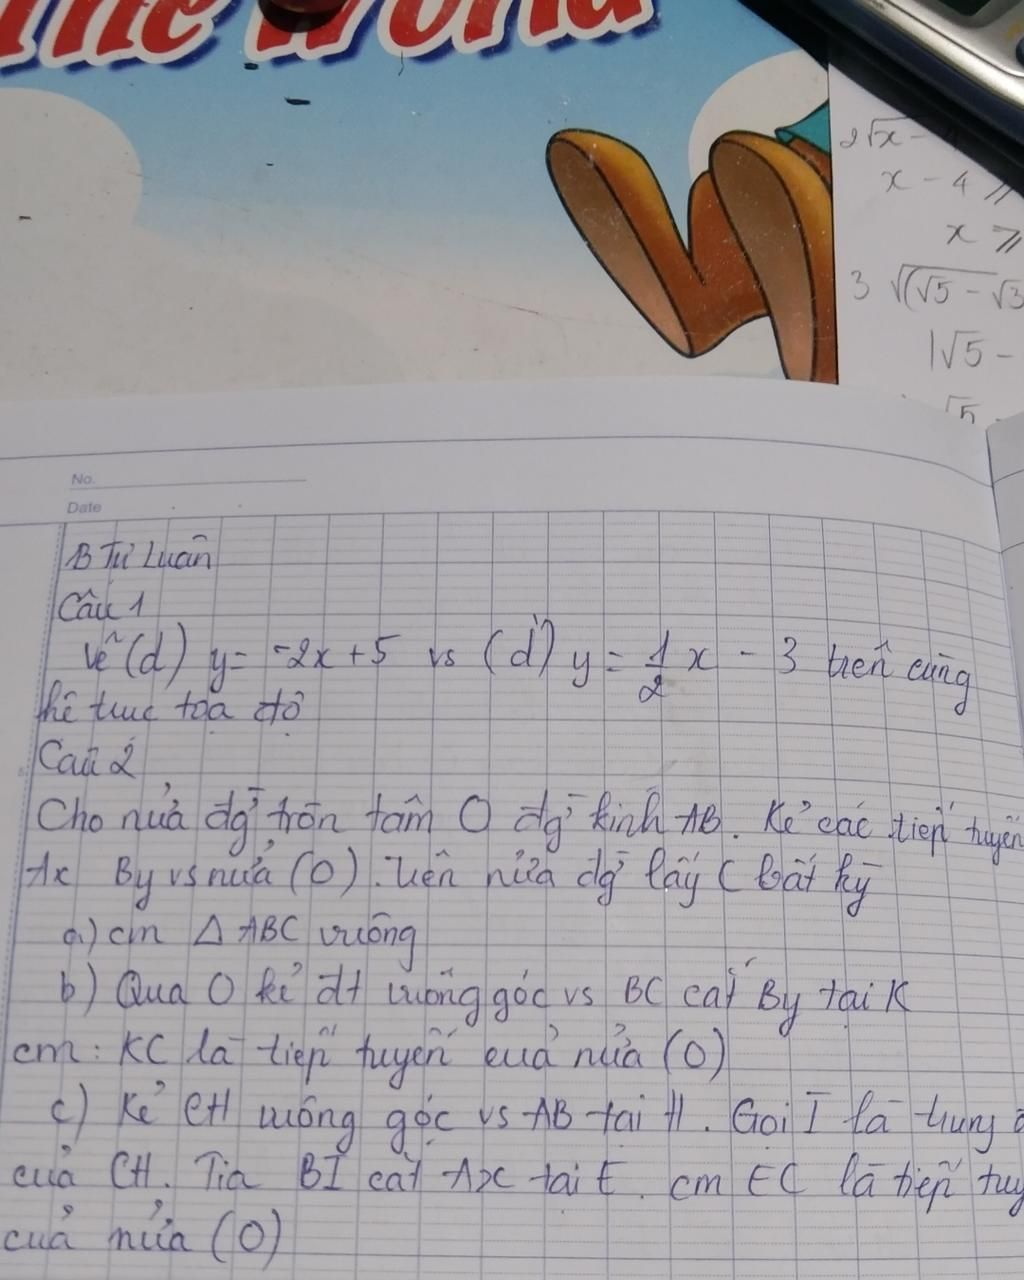 The World
2√x -
x - 4 ⩾
x ⩾
3 √(√5 - √3
|√5 -
√5
No.
Date
B Tự Luận
Câu 1
Vẽ (d) y = -2x + 5 vs (d') y = 1/2 x - 3 trên cùng
hệ trục tọa độ
Câu 2
Cho nửa đg̀ tròn tâm O đg̀ kính AB. Kẻ các tiếp tuyến
Ax By vs nửa (O). Trên nửa đg̀ lấy C bất kỳ
a) cm △ ABC vuông
b) Qua O kẻ đt vuông góc vs BC cắt By tại K
cm: KC là tiếp tuyến của nửa (O)
c) Kẻ CH vuông góc vs AB tại H. Gọi I là trung
của CH. Tia BI cắt Ax tại E. cm EC là tiếp tuy
của nửa (O)